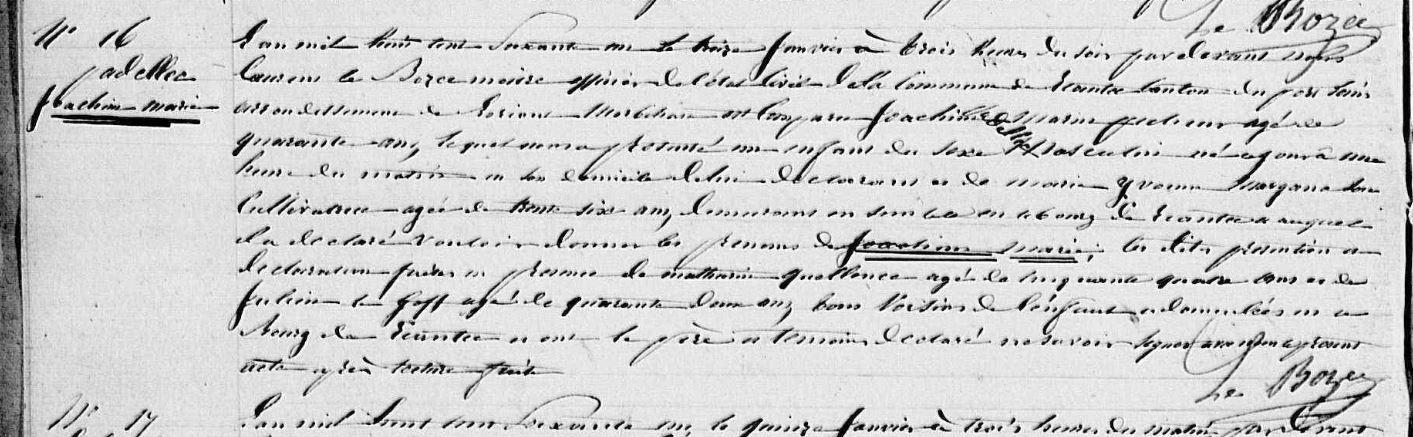 Le Bozec
N° 16
Jadellec
Joachim marie
L'an mil huit cent soixante un le treize Janvier à trois heures du soir par devant nous
Laurent le Bozec maire officier de l'état civil de la commune de Riantec canton du port Louis
arrondissement de Lorient Morbihan est comparu Joachim agé de
quarante ans, lequel nous a presenté un enfant du sexe Masculin né ce jour à une
heure du matin en son domicile de lui declarant et de marie Yvonne
Cultivatrice agée de trente six ans, demeurant en semble en le bourg de Riantec auquel
il a declaré vouloir donner les prenoms de Joachim Marie, les dites presentation et
declaration faites en presence de mathurin agé de cinquante quatre ans et de
Julien le Goff agé de quarante deux ans, tous voisins de l'enfant domiciliés en ce
bourg de Riantec et ont le père et temoins declaré ne savoir signer le present
acte après lecture faite
Le Bozec
N° 17
L'an mil huit cent soixante un, le quinze Janvier à trois heures du matin par devant